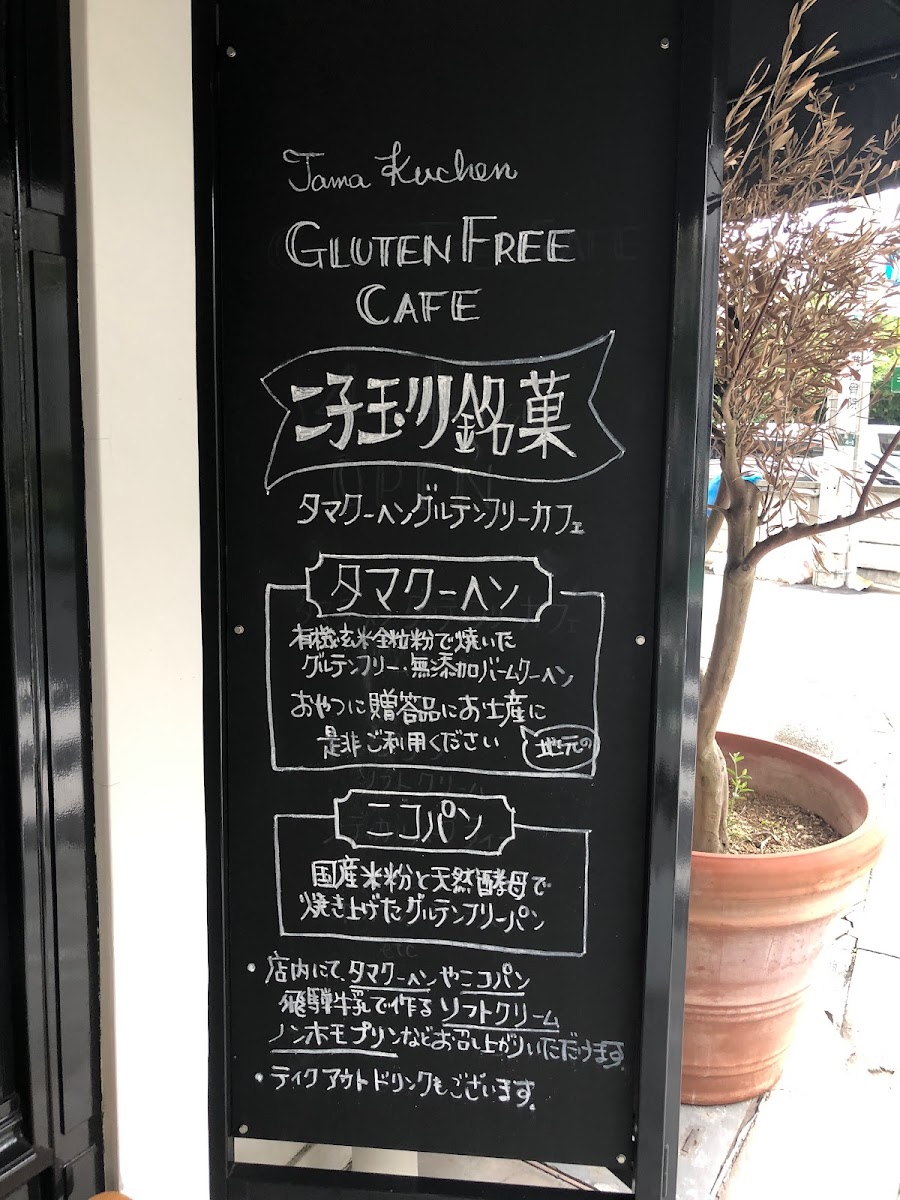 Tama Kuchen
GLUTEN FREE
CAFE
二子玉川銘菓
タマクーヘングルテンフリーカフェ
タマクーヘン
有機玄米全粒粉で焼いた
グルテンフリー・無添加バームクーヘン
おやつに贈答品にお土産に
是非ご利用ください
地元の
ニコパン
国産米粉と天然酵母で
焼き上げたグルテンフリーパン
・店内にて、タマクーヘンやニコパン
飛騨牛乳で作るソフトクリーム
ノンホモプリンなどお召し上がりいただけます。
・テイクアウトドリンクもございます。